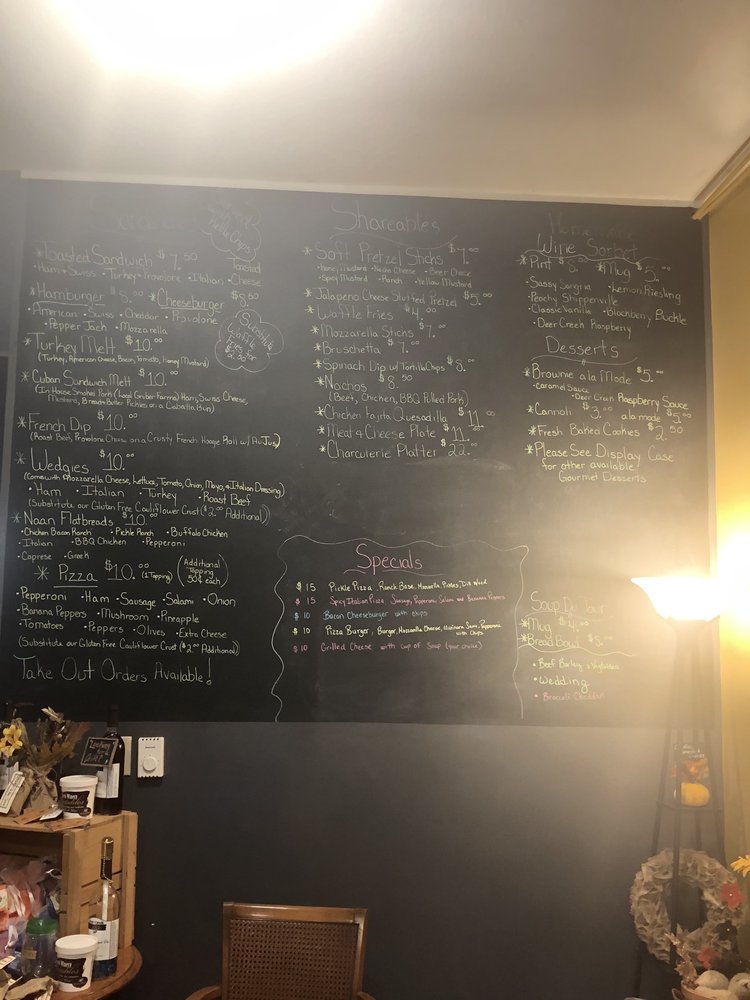 Pickle Chips!
*Toasted Sandwich $7.50
Toasted
•Ham+Swiss •Turkey+Provolone •Italian •Cheese
*Hamburger $8.00 *Cheeseburger $8.50
•American •Swiss •Cheddar •Provolone
•Pepper Jack •Mozzarella
Substitute
Waffle
Fries
*Turkey Melt $10.00
(Turkey, American Cheese, Bacon, Tomato, Honey Mustard)
*Cuban Sandwich Melt $10.00
(In House Smoked Pork (Local Gruber Farms) Ham, Swiss Cheese,
Mustard, Bread+Butter Pickles on a Ciabatta Bun)
*French Dip $10.00
(Roast Beef, Provolone Cheese on a Crusty French Hoagie Roll w/ Au Jus)
*Wedgies $10.00
(Comes with Mozzarella Cheese, Lettuce, Tomato, Onion, Mayo, + Italian Dressing)
•Ham •Italian •Turkey •Roast Beef
(Substitute our Gluten Free Cauliflower Crust ($2.00 Additional))
*Naan Flatbreads $10.00
•Chicken Bacon Ranch •Pickle Ranch •Buffalo Chicken
•Italian •BBQ Chicken •Pepperoni
•Caprese •Greek
*Pizza $10.00 (1 Topping)
(Additional
Topping
50¢ each)
•Pepperoni •Ham •Sausage •Salami •Onion
•Banana Peppers •Mushroom •Pineapple
•Tomatoes •Peppers •Olives •Extra Cheese
(Substitute our Gluten Free Cauliflower Crust ($2.00 Additional))
Take Out Orders Available!
Shareables
*Soft Pretzel Sticks $7.00
•Honey Mustard •Nacho Cheese •Beer Cheese
•Spicy Mustard •Ranch •Yellow Mustard
*Jalapeno Cheese Stuffed Pretzel $5.00
*Waffle Fries $4.00
*Mozzarella Sticks $7.00
*Bruschetta $7.00
*Spinach Dip w/ Tortilla Chips $8.00
*Nachos $8.50
(Beef, Chicken, BBQ Pulled Pork)
*Chicken Fajita Quesadilla $11.00
*Meat & Cheese Plate $11.00
*Charcuterie Platter $22.00
Specials
$15 Pickle Pizza, Ranch Base, Mozzarella, Pickles, Dill Weed
$15 Spicy Italian Pizza, Sausage, Pepperoni, Salami and Banana Peppers
$10 Bacon Cheeseburger with chips
$10 Pizza Burger, Burger, Mozzarella Cheese, Marinara Sauce, Pepperoni
with Chips
$10 Grilled Cheese with cup of Soup (your choice)
Homemade
Wine Sorbet
*Pint $8.00 *Mug $5.00
•Sassy Sangria •Lemon Riesling
•Peachy Shippenville
•Classic Vanilla •Blackberry Buckle
•Deer Creek Raspberry
Desserts
*Brownie ala Mode $5.00
•Caramel Sauce
•Deer Creek Raspberry Sauce
*Cannoli $3.00 ala mode $5.00
*Fresh Baked Cookies $2.50
*Please See Display Case
for other available
Gourmet Desserts
Soup Du Jour
*Mug $4.00
*Bread Bowl $5.00
•Beef Barley + Vegetables
•Wedding
•Broccoli Cheddar